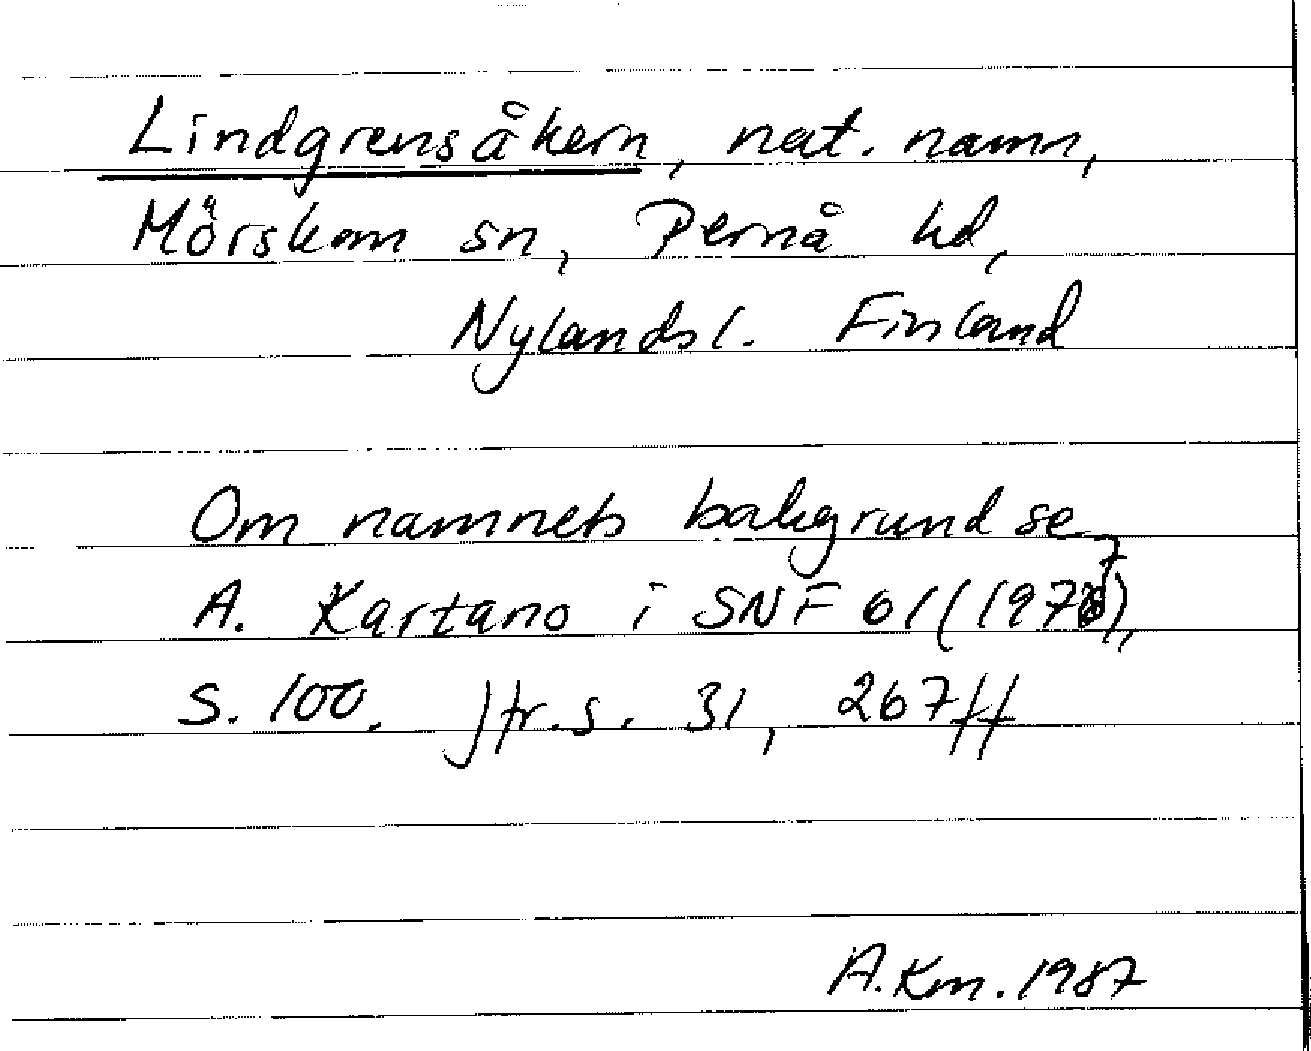 Lindgrensåkern, nat. namn,
Mörskom sn, Pernå hd,
Nylandsl. Finland
Om namnets bakgrund se
A. Kartano i SNF 61 (1977),
s. 100. Jfr. s. 31, 267 ff
A.Km. 1987